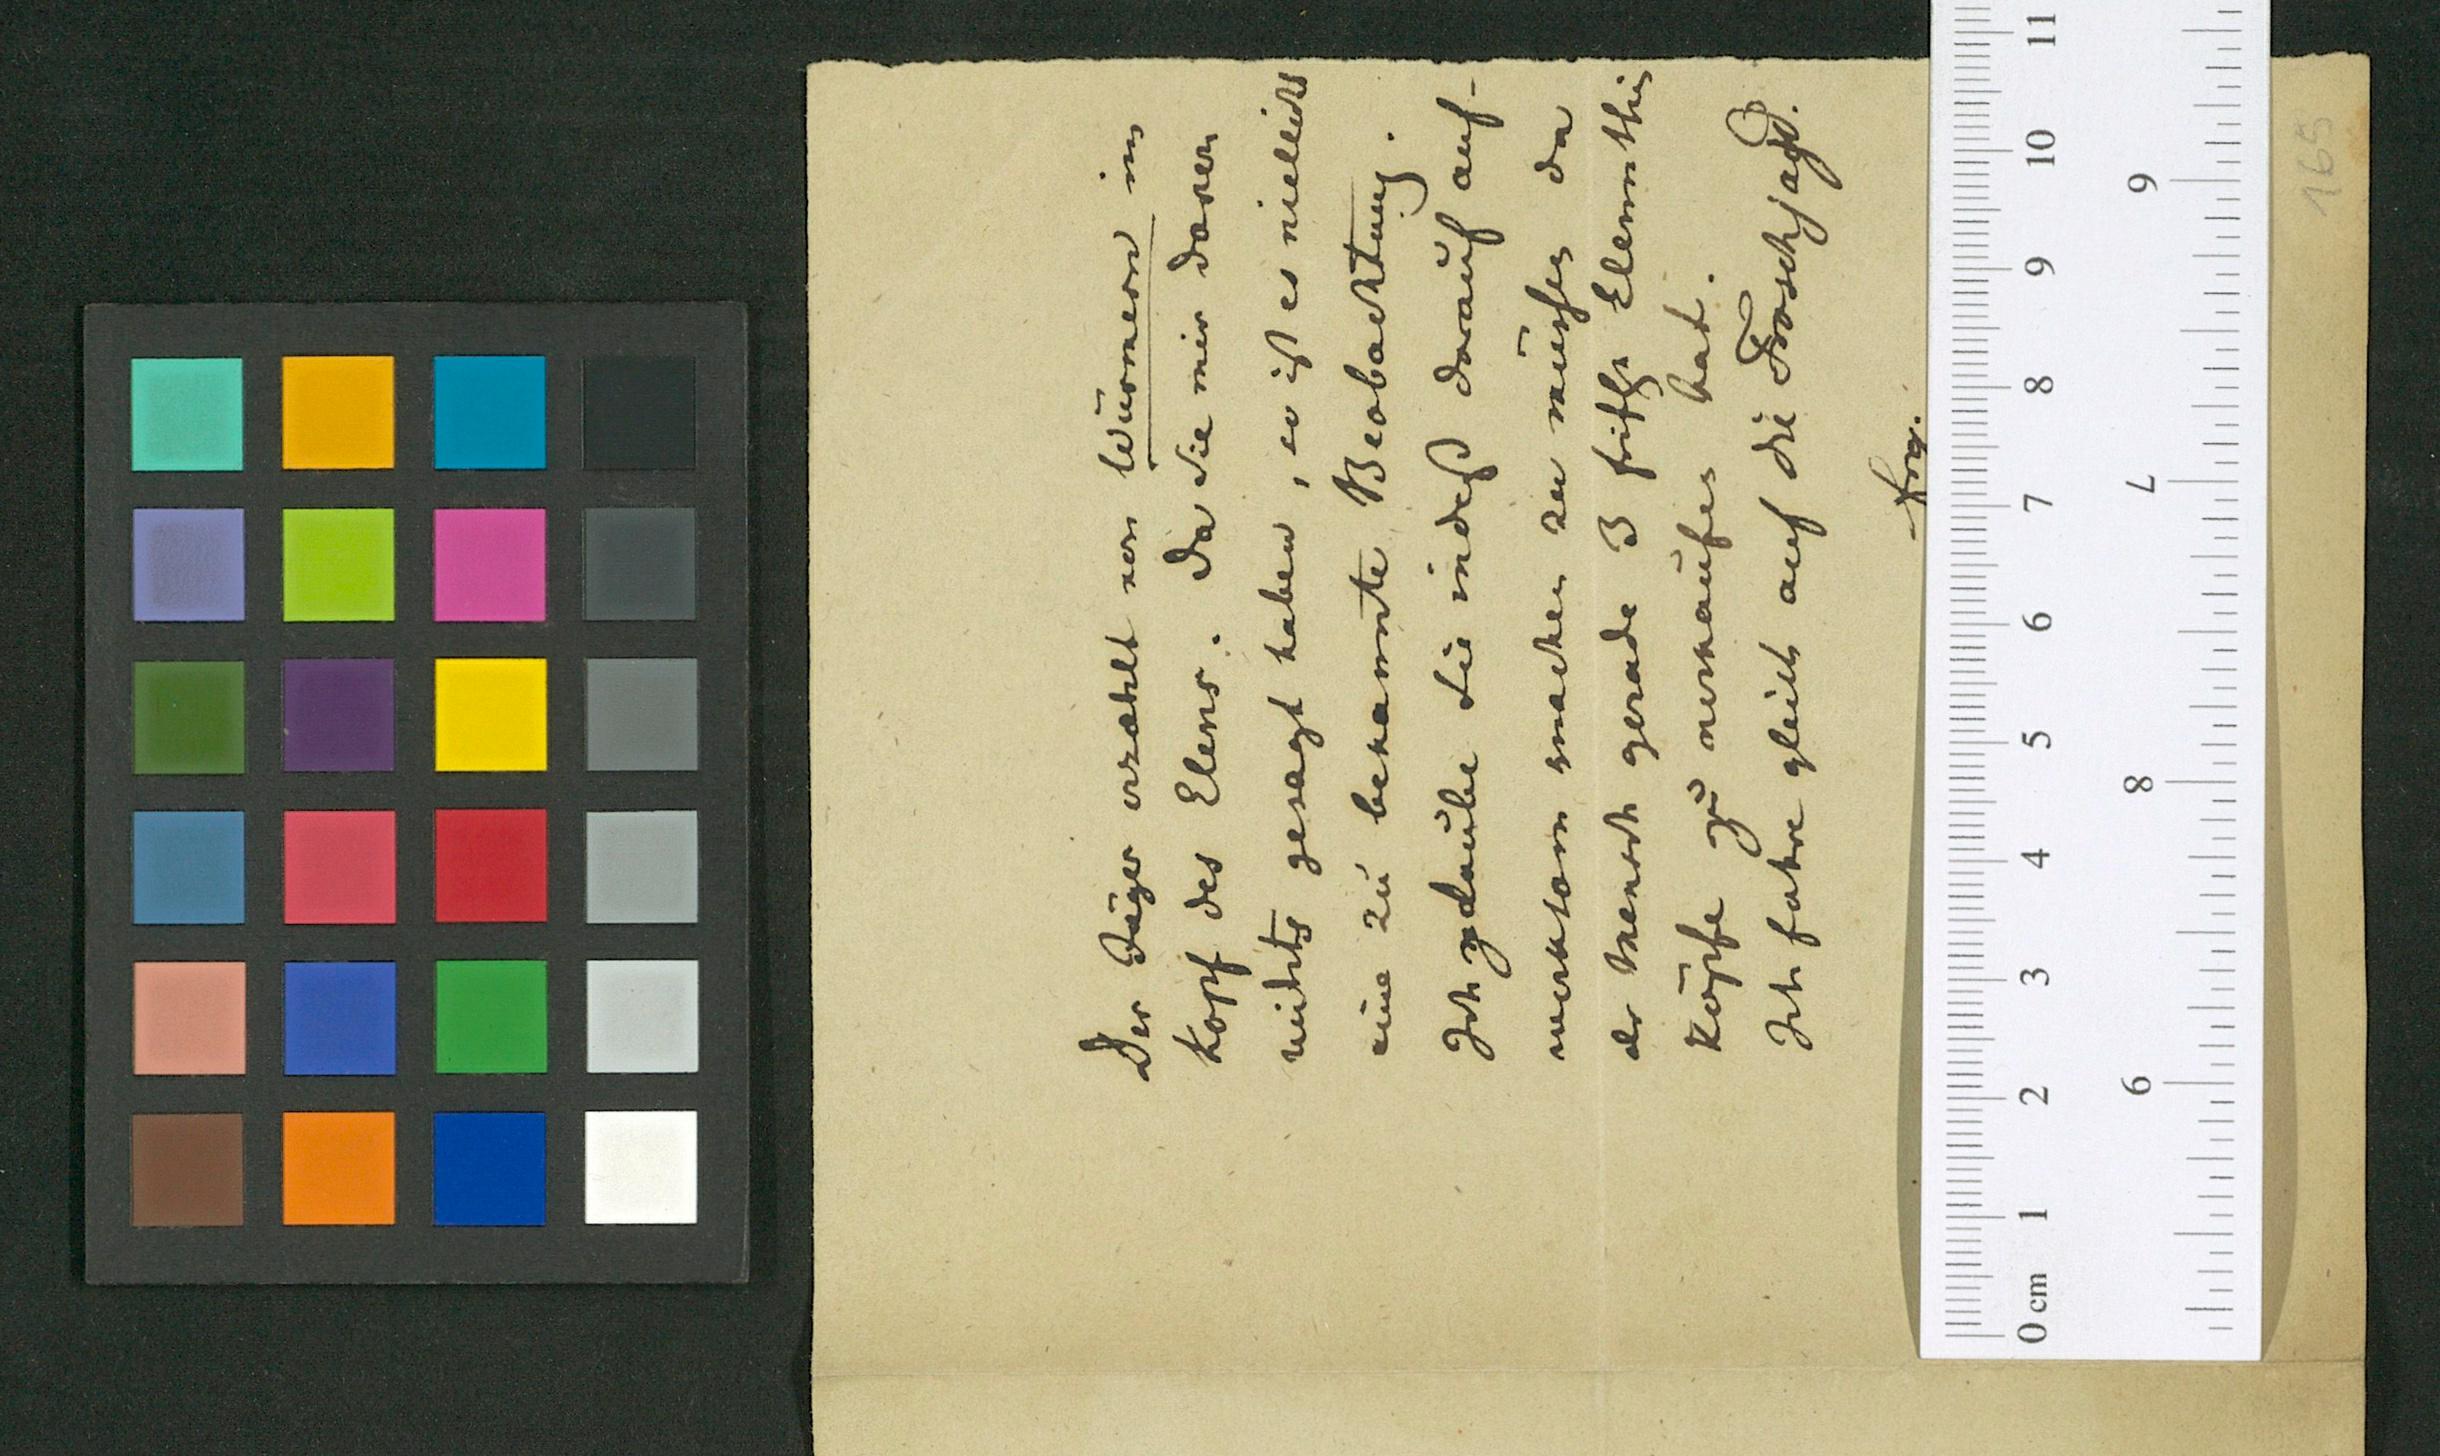 Der Jäger erzählt von Würmern im
Kopf des Elens. Da Sie mir davon
nichts gesagt haben, so ist es vielleicht
eine zu bekannte Beobachtung.
Ich glaube Sie indeß darauf auf-
merksam machen zu müssen da
der Mensch gerade 3 frische Elennthier
köpfe zu verkaufen hat.
Ich fahre gleich auf die Froschjagd.
165
0 cm 1 2 3 4 5 6 7 8 9 10 11
9 8 7 6